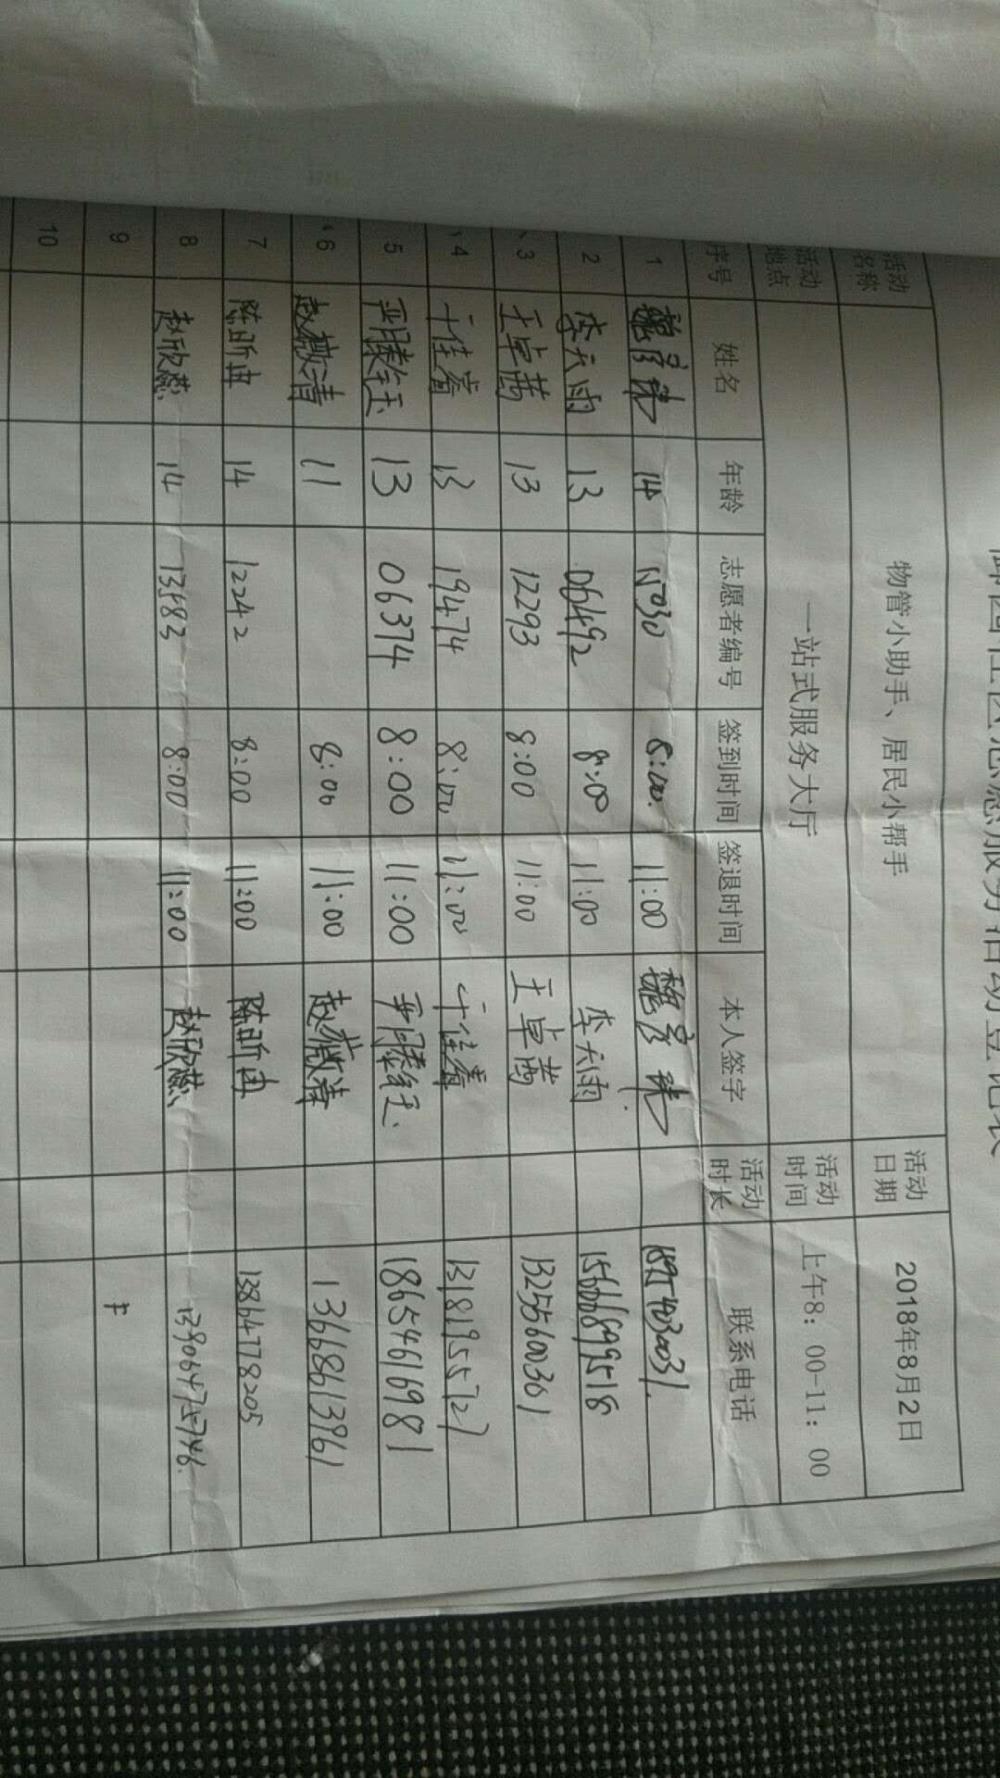 活动名称 物管小助手、居民小帮手 活动日期 2018年8月2日
活动地点 一站式服务大厅 活动时间 上午8：00-11：00
序号 姓名 年龄 志愿者编号 签到时间 签退时间 本人签字 活动时长 联系电话
1 14 15030 8:00. 11:00
2 李天雨 13 06492 8:00 11:00 李天雨 15666899518
3 王卓茜 13 12293 8:00 11:00 王卓茜 132555600301
4 于佳 13 19474 8:00 11:00 于佳 13181955727
5 13 06374 8:00 11:00 18654616981
6 赵薇清 11 8:00 11:00 赵薇清 13668613961
7 陈昕冉 14 12242 8:00 11:00 陈昕冉 13864778205
8 赵欣燕 14 13583 8:00 11:00 赵欣燕 13906475746.
9
10